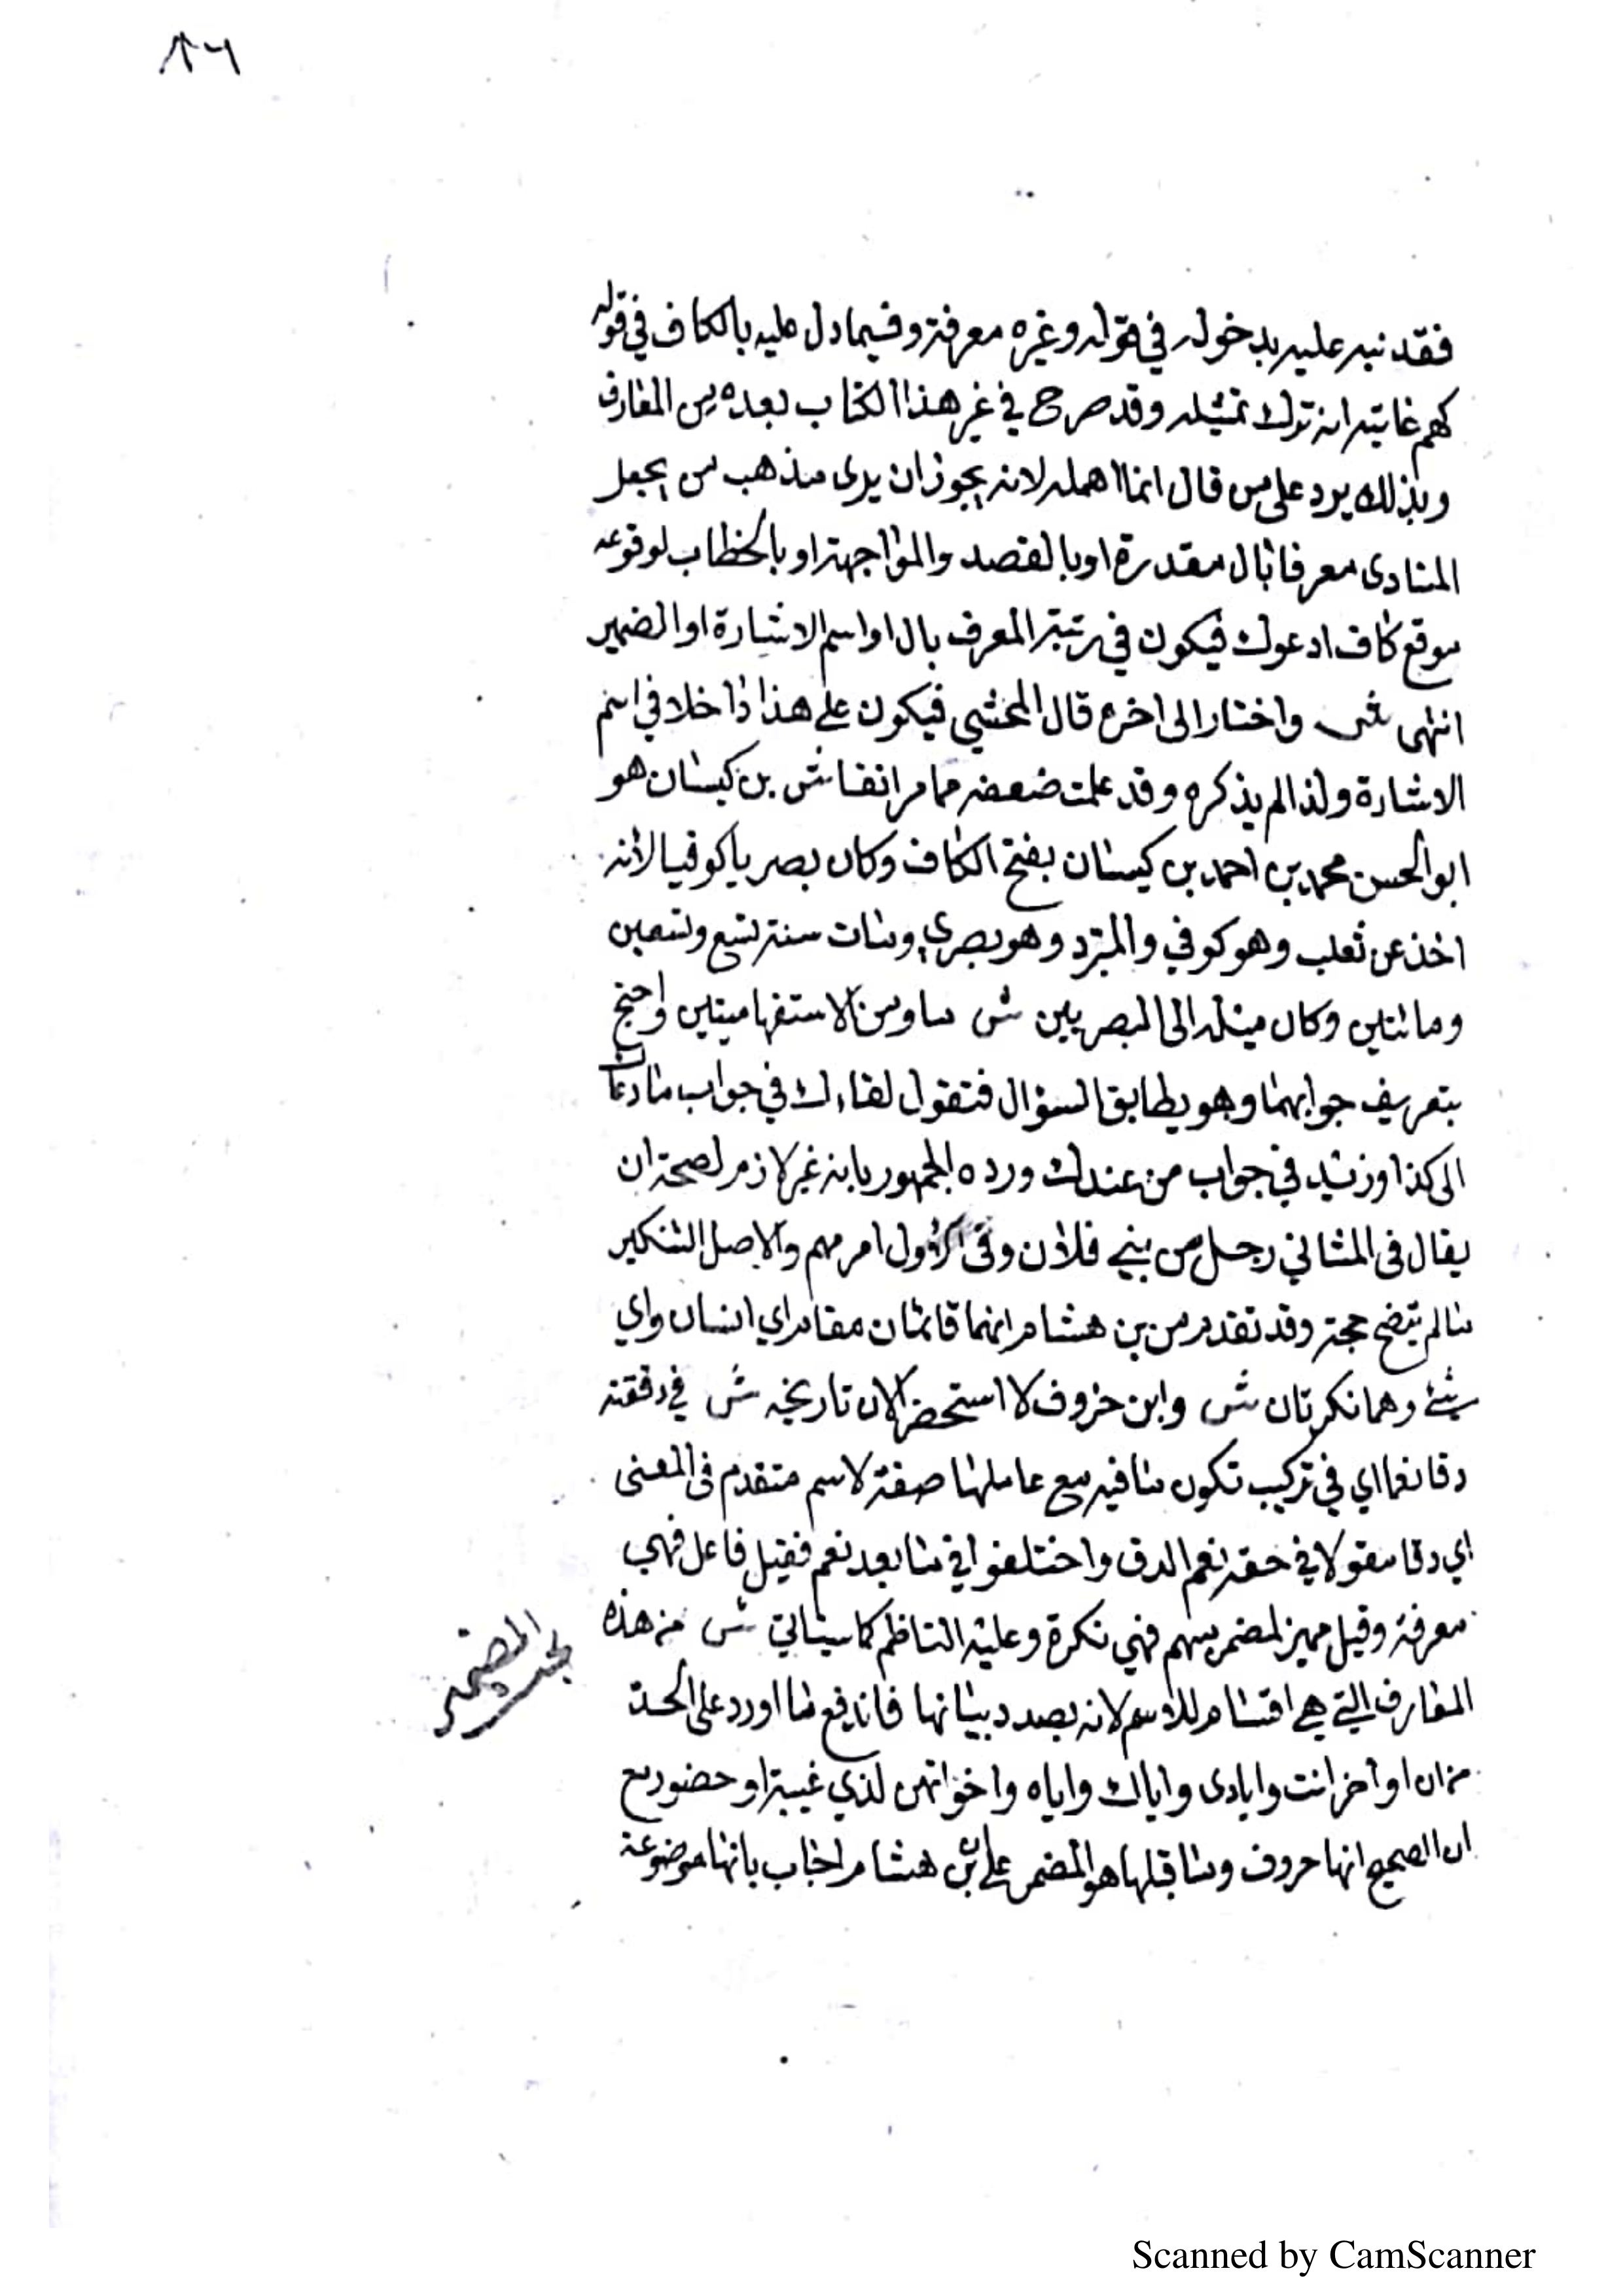 ٨٦
فقد نبه عليه بدخوله في قوله وغيره معرفة وفيما دل عليه بالكاف في قوله
كهم غايته انه ترك تمثيله وقد صرح في غير هذا الكتاب بعده من المعارف
وبذلك يرد على من قال انما اهمله لانه يجوز ان يرى مذهب من يجعل
المنادى معرفا بال مقدرة او بالقصد والمواجهة او بالخطاب لوقوعه
موقع كاف ادعوك فيكون في رتبة المعرف بال او اسم الاشارة او الضمير
انتهى ش واختار الى اخره قال المحشي فيكون على هذا داخلا في اسم
الاشارة ولذا لم يذكره وقد علمت ضعفه مما مر انفا ش بن كيسان هو
ابو الحسن محمد بن احمد بن كيسان بفتح الكاف وكان بصريا كوفيا لانه
اخذ عن ثعلب وهو كوفي والمبرد وهو بصري ومات سنة تسع وتسعين
ومائتين وكان ميله الى البصريين ش ما ومن الاستفهاميتين واحتج
بتعريف جوابهما وهو يطابق السؤال فتقول لقاءك في جواب ما دعاك
الى كذا وزيد في جواب من عندك ورده الجمهور بانه غير لازم لصحة ان
يقال في الثاني رجل من بني فلان وفي الاول امر مهم والاصل التنكير
ما لم تتضح حجة وقد تقدم من بن هشام انهما قائمتان مقام اي انسان واي
شيء وهما نكرتان ش وابن خروف لا استحضر الان تاريخه ش في دققته
دقا نعما اي في تركيب تكون ما فيه مع عاملها صفة لاسم متقدم في المعنى
اي دقا مقولا في حقه نعم الدق واختلفوا في ما بعد نعم فقيل فاعل فهي
معرفة وقيل مميز لمضمر مبهم فهي نكرة وعليه الناظم كما سياتي ش من هذه
المعارف التي هي اقسام للاسم لانه بصدد بيانها فاندفع ما اورد على الحد
من ان اواخر انت واياي واياك واياه واخواتهن لذي غيبة او حضور مع
ان الصحيح انها حروف وما قبلها هو المضمر على ان بن هشام اجاب بانها موضوعة
المضمر